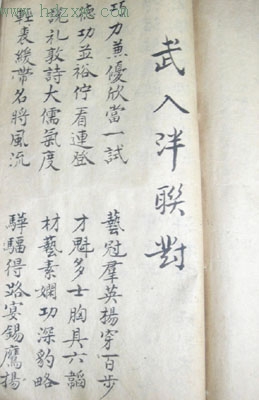 武入泮聯對
巧力兼優欣當一試
德功並裕佇看連登
說礼敦詩大儒氣度
輕裘緩帶名將風流
藝冠羣英揚穿百步
才魁多士胸具六韜
材藝素嫻功深豹略
驊騮得路宴錫鷹揚